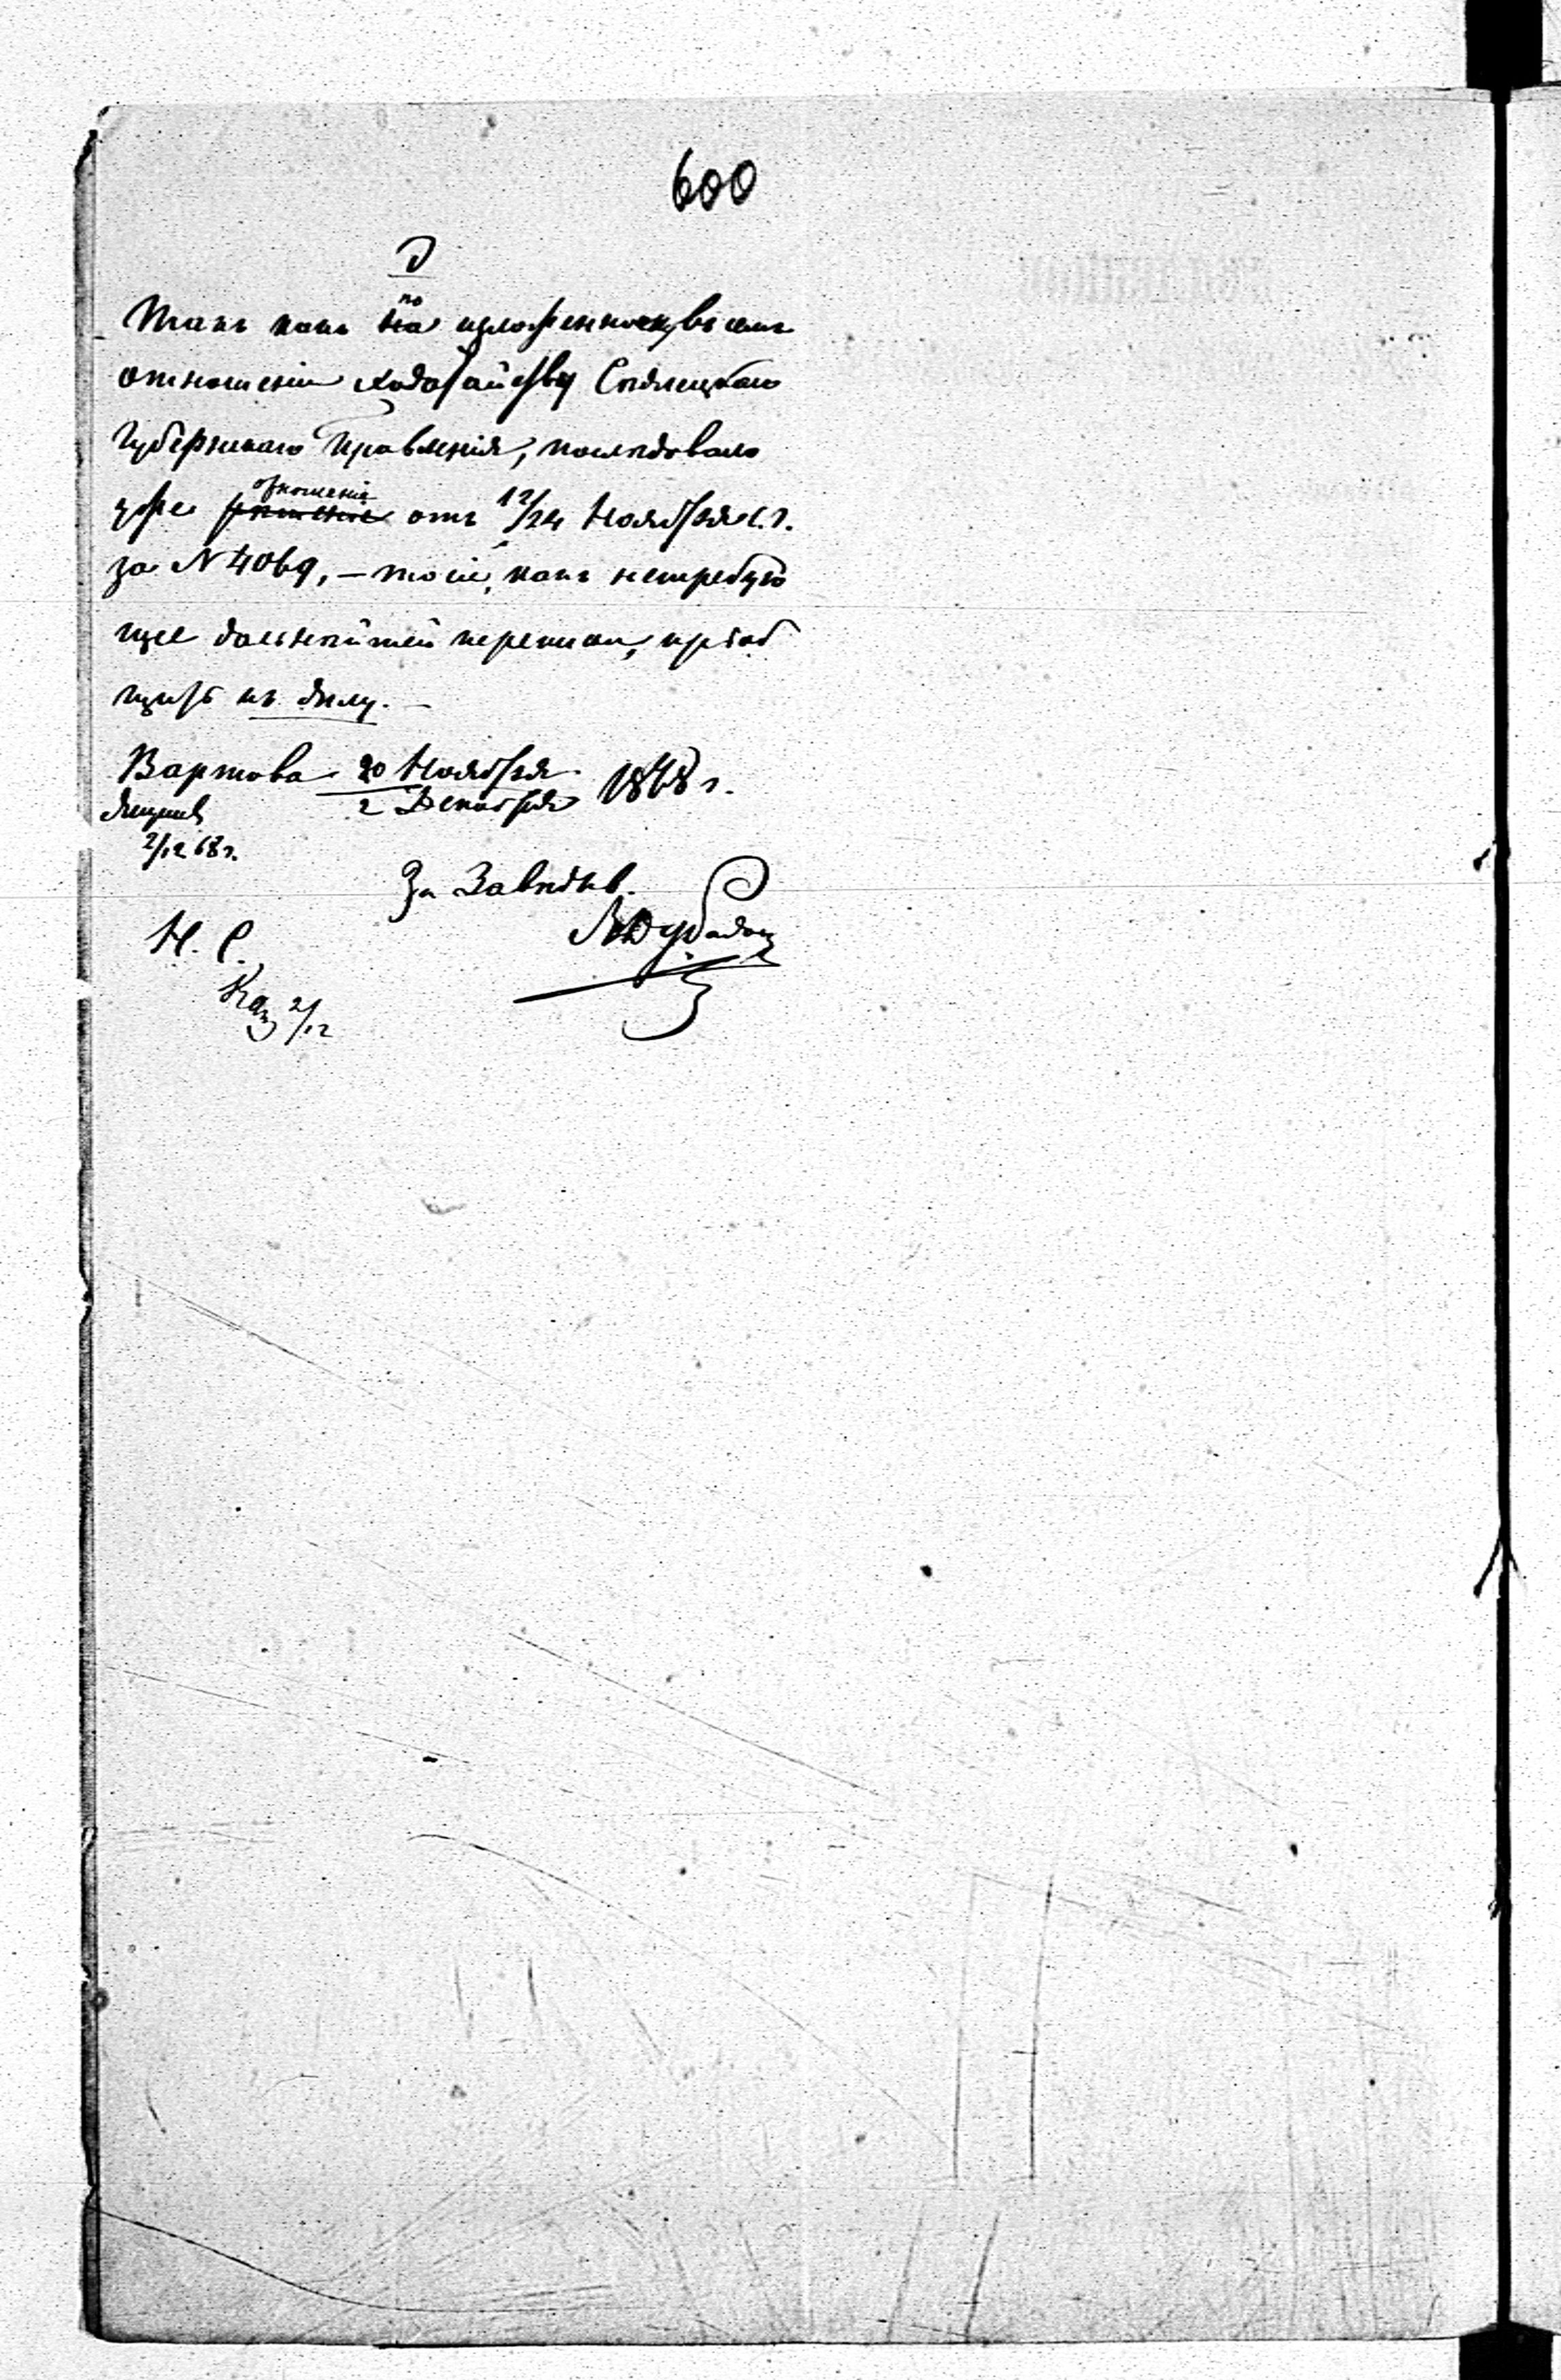 600
Д
Такъ какъ по изложенному въ семъ
отношеніи ходатайству Сѣдлецкаго
Губернскаго Правленія, послѣдовало
уже отношеніе рѣшеніе отъ 12/24 Ноября с.г.
за N 4069, – то сіе, какъ нетребую
щее дальнѣйшей переписки, пріоб
щить къ дѣлу. –
Варшава 20 Ноября / 2 Декабря 1868 г.
2/12 68 г.
За Завѣдыв.
Н. С.
2/12